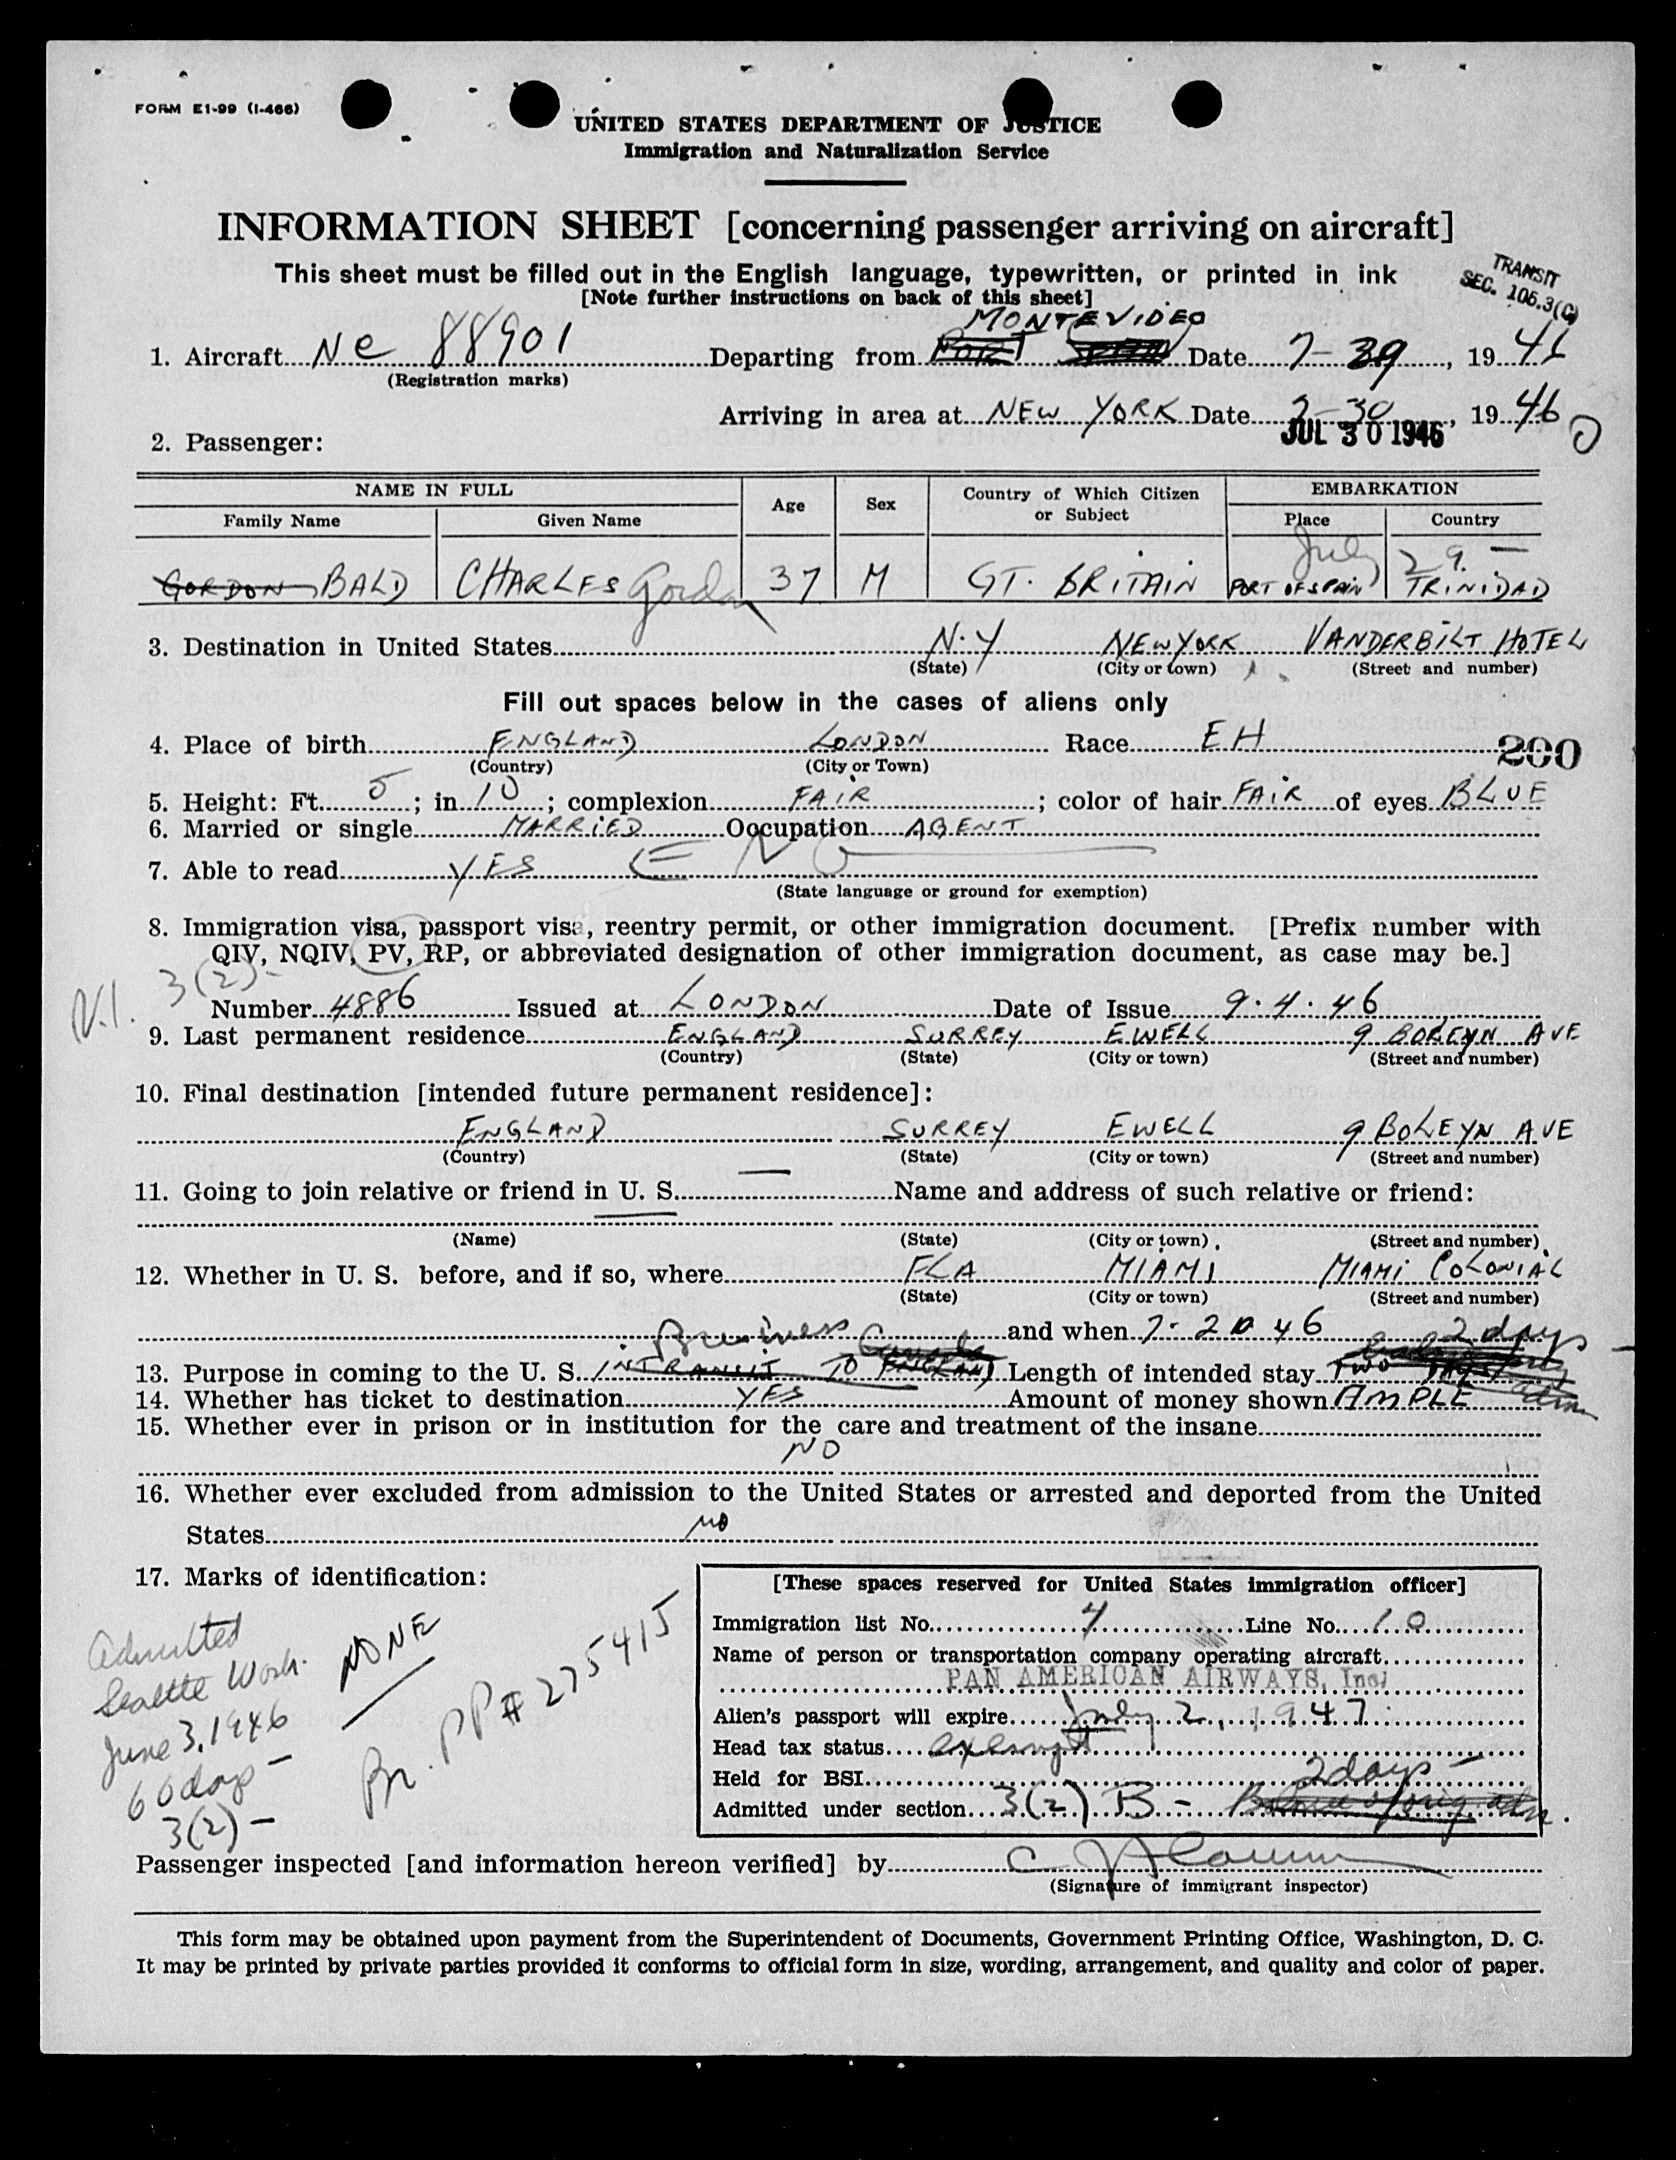 FORM E1-99 (I-466)
UNITED STATES DEPARTMENT OF JUSTICE
Immigration and Naturalization Service
INFORMATION SHEET [concerning passenger arriving on aircraft]
This sheet must be filled out in the English language, typewritten, or printed in ink
[Note further instructions on back of this sheet]
TRANSIT
SEC. 106.3(C)
MONTEVIDEO
1. Aircraft Nc 88901 Departing from PORT Date 7-29, 1946
(Registration marks)
Arriving in area at NEW YORK Date 7-30, 1946
JUL 30 1946
2. Passenger:
NAME IN FULL Age Sex Country of Which Citizen or Subject EMBARKATION
Family Name Given Name Place Country
July 29.-
GORDON BALD CHARLES Gordon 37 M GT. BRITAIN PORT OF SPAIN TRINIDAD
3. Destination in United States N.Y NEW YORK VANDERBILT HOTEL
(State) (City or town) (Street and number)
Fill out spaces below in the cases of aliens only
4. Place of birth ENGLAND LONDON Race EH
200
(Country) (City or Town)
5. Height: Ft. 5; in. 10; complexion FAIR; color of hair FAIR of eyes BLUE
6. Married or single MARRIED Occupation AGENT
7. Able to read YES
(State language or ground for exemption)
8. Immigration visa, passport visa, reentry permit, or other immigration document. [Prefix number with
QIV, NQIV, PV, RP, or abbreviated designation of other immigration document, as case may be.]
N.I. 3(2)-
Number 4886 Issued at LONDON Date of Issue 9.4.46
9. Last permanent residence ENGLAND SURREY EWELL 9 BOLEYN AVE
(Country) (State) (City or town) (Street and number)
10. Final destination [intended future permanent residence]:
ENGLAND SURREY EWELL 9 BOLEYN AVE
(Country) (State) (City or town) (Street and number)
11. Going to join relative or friend in U. S. — Name and address of such relative or friend:
(Name) (State) (City or town) (Street and number)
12. Whether in U. S. before, and if so, where FLA MIAMI MIAMI COLONIAL
(State) (City or town) (Street and number)
Business and when 7-2 46 2 days
13. Purpose in coming to the U. S. INTRANSIT TO ENGLAND Length of intended stay TWO DAYS
14. Whether has ticket to destination YES Amount of money shown AMPLE
15. Whether ever in prison or in institution for the care and treatment of the insane
NO
16. Whether ever excluded from admission to the United States or arrested and deported from the United
States NO
17. Marks of identification:
NONE
Admitted
Seattle Wash.
June 3, 1946
60 days -
3(2) -
Br. PP# 275415
[These spaces reserved for United States immigration officer]
Immigration list No. 4 Line No. 10
Name of person or transportation company operating aircraft
PAN AMERICAN AIRWAYS, Inc.
Alien's passport will expire July 2, 1947
Head tax status exempt
Held for BSI 2 days -
Admitted under section 3(2) B -
Passenger inspected [and information hereon verified] by
(Signature of immigrant inspector)
This form may be obtained upon payment from the Superintendent of Documents, Government Printing Office, Washington, D. C.
It may be printed by private parties provided it conforms to official form in size, wording, arrangement, and quality and color of paper.